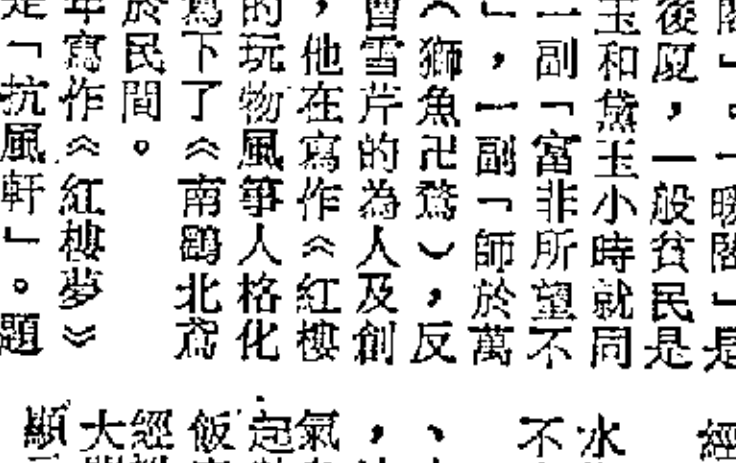 閣」。「暖閣」是
後廈，一般貧民是
玉和黛玉小時就同
一副「富非所望不
」，一副「師於萬
（獅魚），反
曹雪芹的為人及創
，他在寫作《紅樓
的玩物風箏人格化
寫下了《南鷂北鳶
於民間。
年寫作《紅樓夢》
是「抗風軒」。題
經
水
不
、
，
氣
起
飯
經
大
顯